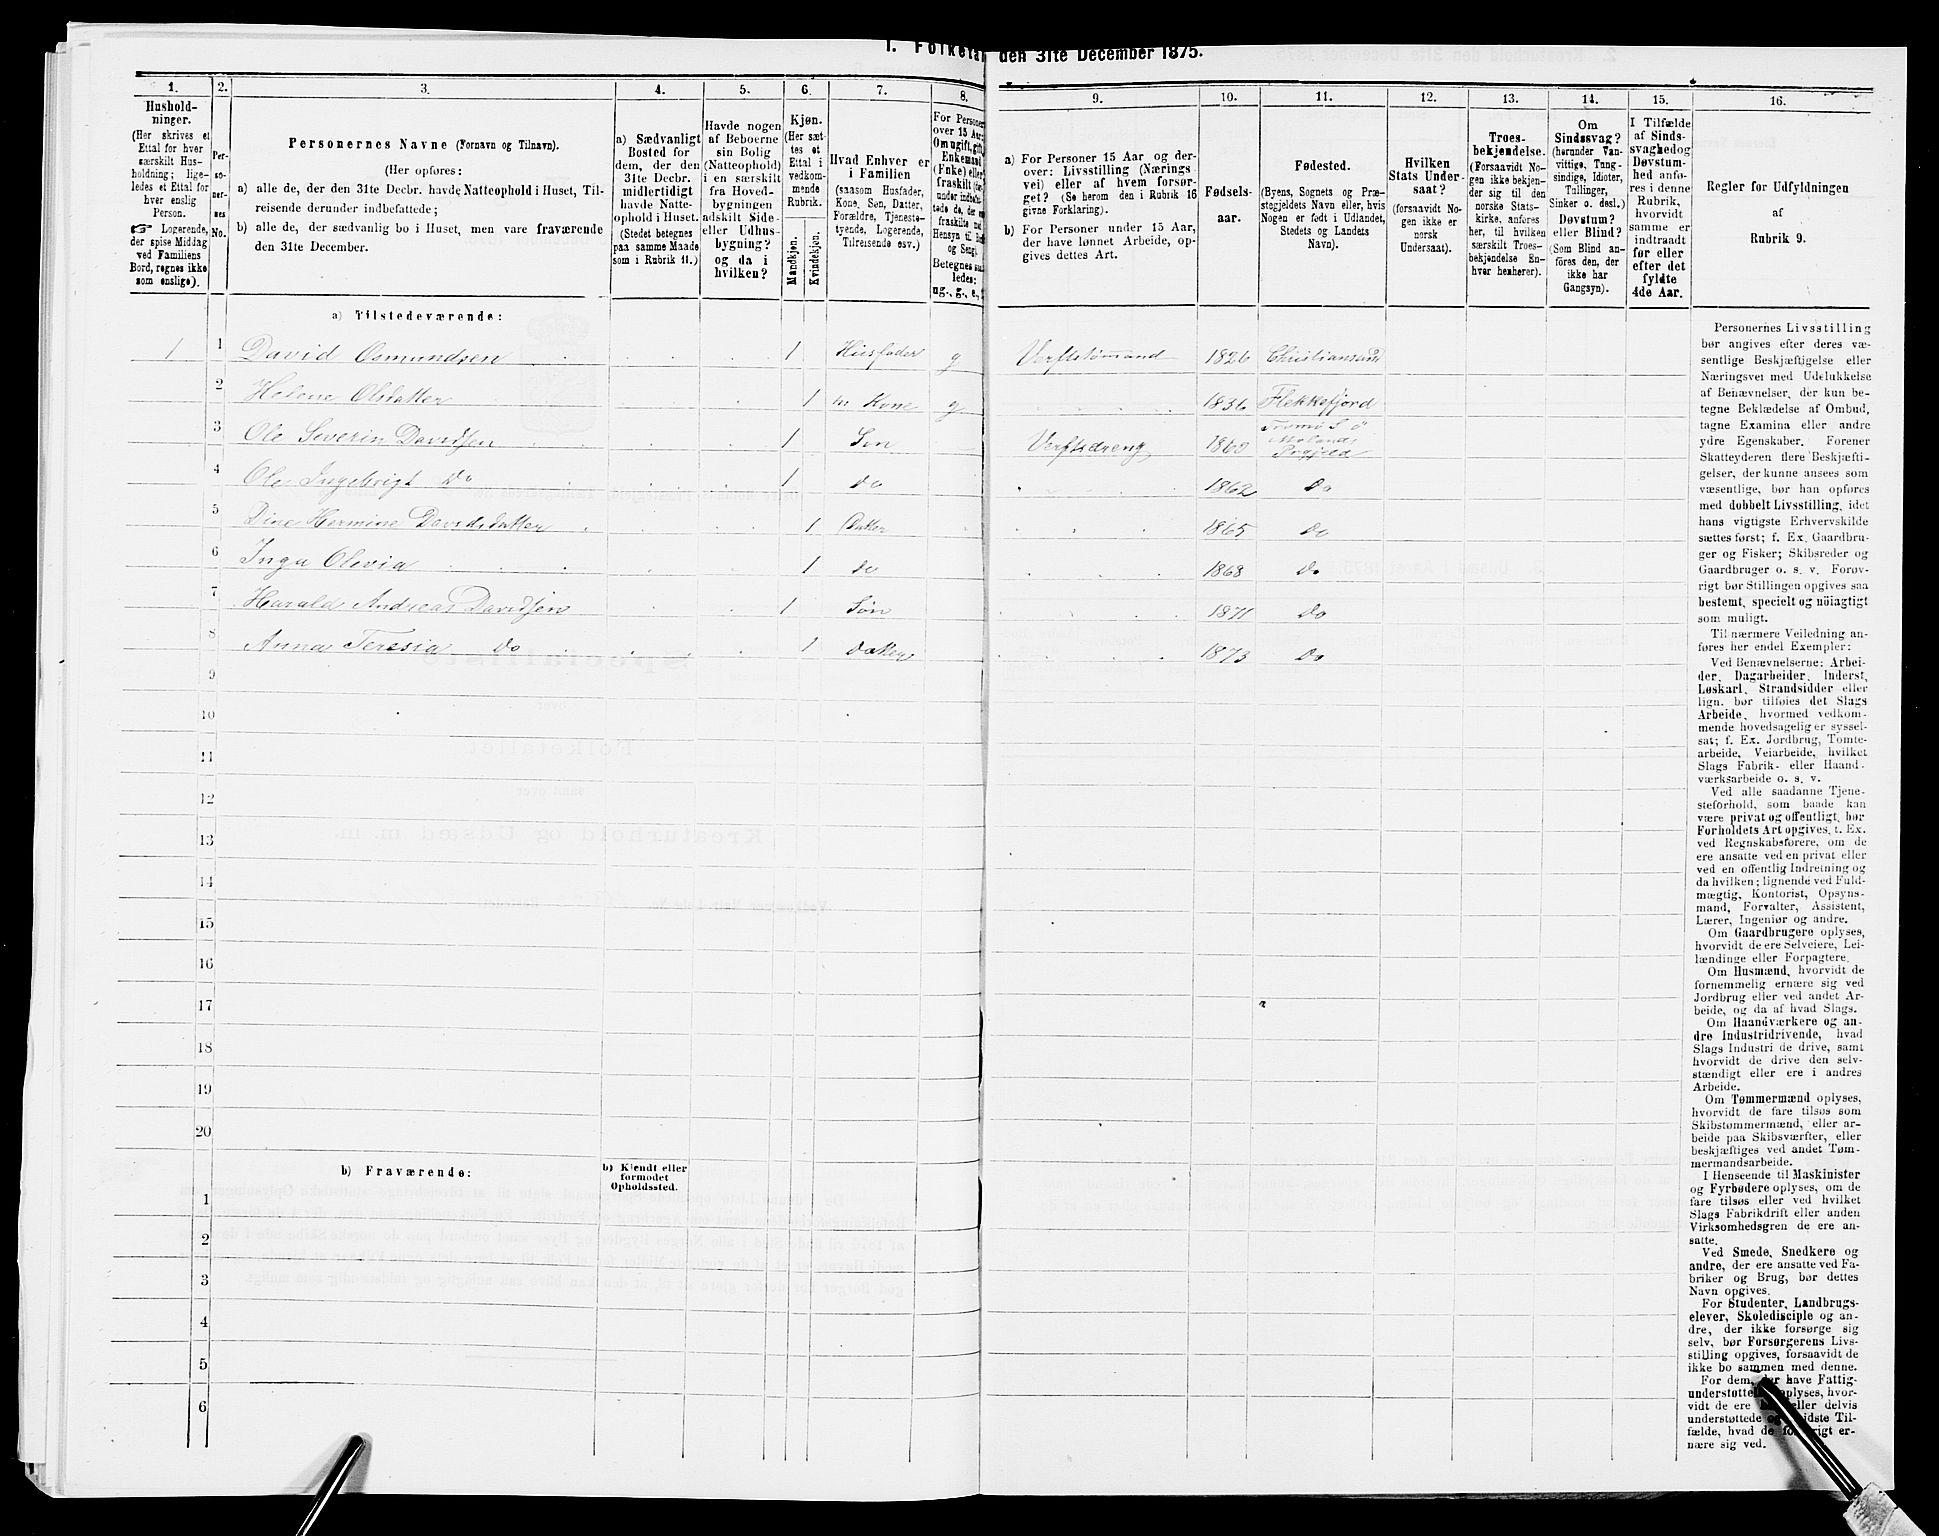 1. Folketal den 31te December 1875.
1.
2.
3.
4.
5.
6.
7.
8.
9.
10.
11.
12.
13.
14.
15.
16.
Hushold-
ninger.
(Her skrives et
Ettal for hver
særskilt Hus-
holdning; lige-
ledes et Ettal for
hver enslig
Person.
☞ Logerende,
der spise Middag
ved Familiens
Bord, regnes ikke
som enslige).
Per-
so-
ner-
nes
No.
Personernes Navne (Fornavn og Tilnavn).
(Her opføres:
a) alle de, der den 31te Decbr. havde Natteophold i Huset, Til-
reisende derunder indbefattede;
b) alle de, der sædvanlig bo i Huset, men vare fraværende
den 31te December.
a) Sædvanligt
Bosted for
dem, der den
31te Decbr.
midlertidigt
havde Natte-
ophold i Huset.
(Stedet betegnes
paa samme Maade
som i Rubrik 11.)
Havde nogen
af Beboerne
sin Bolig
(Natteophold)
i en særskilt
fra Hoved-
bygningen
adskilt Side-
eller Udhus-
bygning?
og da i
hvilken?
Kjøn.
(Her sæt-
tes et
Ettal i
vedkom-
mende
Rubrik.
Mandkjøn.
Kvindekjøn.
Hvad Enhver er
i Familien
(saasom Husfader,
Kone, Søn, Datter,
Forældre, Tjeneste-
tyende, Logerende,
Tilreisende osv.).
For Persone
over 15 Aar:
Om ugift, gift,
Enkemand
(Enke) eller
fraskilt
Betegnes
ledes:
ug., g., e.,
a) For Personer 15 Aar og der-
over: Livsstilling (Nærings-
vei) eller af hvem forsør-
get? (Se herom den i Rubrik 16
givne Forklaring).
b) For Personer under 15 Aar,
der have lønnet Arbeide, op-
gives dettes Art.
Fødsels-
aar.
Fødested.
(Byens, Sognets og Præ-
stegjeldets Navn eller, hvis
Nogen er født i Udlandet,
Stedets og Landets
Navn).
Hvilken
Stats Under-
saat?
(forsaavidt No-
gen ikke er
norsk
Undersaat).
Troes-
bekjendelse.
(Forsaavidt No-
gen ikke bekjen-
der sig til den
norske Stats-
kirke, anføres
her, til hvilken
særskilt Troes-
bekjendelse En-
hver henhører).
Om
Sindssvag?
(herunder Van-
vittige, Tung-
sindige, Idioter,
Tullinger,
Sinker o. desl.)
Døvstum?
eller Blind?
(Som Blind an-
føres den, der
ikke har
Gangsyn).
I Tilfælde
af Sinds-
svaghed og
Døvstum-
hed anfø-
res i denne
Rubrik,
hvorvidt
samme er
indtraadt
før eller
efter det
fyldte
4de Aar.
Regler for Udfyldningen
af
Rubrik 9.
a) Tilstedeværende:
1 1 David Osmundsen 1 Husfader g Verftstømand 1826 Christiansand
2 Helene Olsdatter 1 hs Kone g 1836 Flekkefjord
3 Ole Severin Davidsen 1 Søn Verftsdreng 1860 Tromø S ö Molands Prgjeld
4 Ole Ingebrigt Do 1 do 1862 Do
5 Dine Hermine Davidsdatter 1 Datter 1865 Do
6 Inga Olevia 1 do 1868 Do
7 Harald Andreas Davidsen 1 Søn 1871 Do
8 Anna Teresia Do 1 datter 1873 Do
9
10
11
12
13
14
15
16
17
18
19
20
b) Fraværende:
b) Kjendt eller
formodet
Opholdssted.
1
2
3
4
5
6
Personernes Livsstilling
bør angives efter deres væ-
sentlige Beskjæftigelse eller
Næringsvei med Udelukkelse
af Benævnelser, der kun be-
tegne Beklædelse af Ombud,
tagne Examina eller andre
ydre Egenskaber. Forener
Skatteyderen flere Beskjæfti-
gelser, der kunne ansees som
væsentlige, bør han opføres
med dobbelt Livsstilling, idet
hans vigtigste Erhvervskilde
sættes først; f. Ex. Gaardbru-
ger og Fisker; Skibsreder og
Gaardbruger o. s. v. Forøv-
rigt bør Stillingen opgives saa
bestemt, specielt og nöiagtigt
som muligt.
Til nærmere Veiledning an-
føres her endel Exempler:
Ved Benævnelserne: Arbei-
der, Dagarbeider, Inderst,
Løskarl, Strandsidder eller
lign. bør tilføies det Slags
Arbeide, hvormed vedkom-
mende hovedsagelig er syssel-
sat; f. Ex. Jordbrug, Tomte-
arbeide, Veiarbeide, hvilket
Slags Fabrik- eller Haand-
værksarbeide o. s. v.
Ved alle saadanne Tjene-
steforhold, som baade kan
være privat og offentligt, bør
Forholdets Art opgives, f. Ex.
ved Regnskabsførere, om de
ere ansatte ved en privat eller
ved en offentlig Indretning og
da hvilken; lignende ved Fuld-
mægtig, Kontorist, Opsyns-
mand, Forvalter, Assistent,
Lærer, Ingeniør og andre.
Om Gaardbrugere oplyses,
hvorvidt de ere Selveiere, Lei-
lændinge eller Forpagtere.
Om Husmænd, hvorvidt de
fornemmelig ernære sig ved
Jordbrug eller ved andet Ar-
beide, og da af hvad Slags.
Om Haandværkere og an-
dre Industridrivende, hvad
Slags Industri de drive, samt
hvorvidt de drive den selv-
stændigt eller ere i andres
Arbeide.
Om Tømmermænd oplyses,
hvorvidt de fare tilsøs som
Skibstømmermænd, eller ar-
beide paa Skibsværfter, eller
beskjæftiges ved andet Tøm-
mermandsarbeide.
I Henseende til Maskinister
og Fyrbødere oplyses, om de
fare tilsøs eller ved hvilket
Slags Fabrikdrift eller anden
Virksomhedsgren de ere an-
satte.
Ved Smede, Snedkere og
andre, der ere ansatte ved Fa-
briker og Brug, bør dettes
Navn opgives.
For Studenter, Landbrugs-
elever, Skoledisciple og an-
dre, der ikke forsørge sig
selv, bør Forsørgerens Livs-
stilling opgives, forsaavidt de
ikke bo sammen med denne.
For dem, der have Fattig-
understøttelse, oplyses, hvor-
vidt de ere eller delvis
understøttede og i sidste Til-
fælde, hvad de forøvrigt er-
nære sig ved.